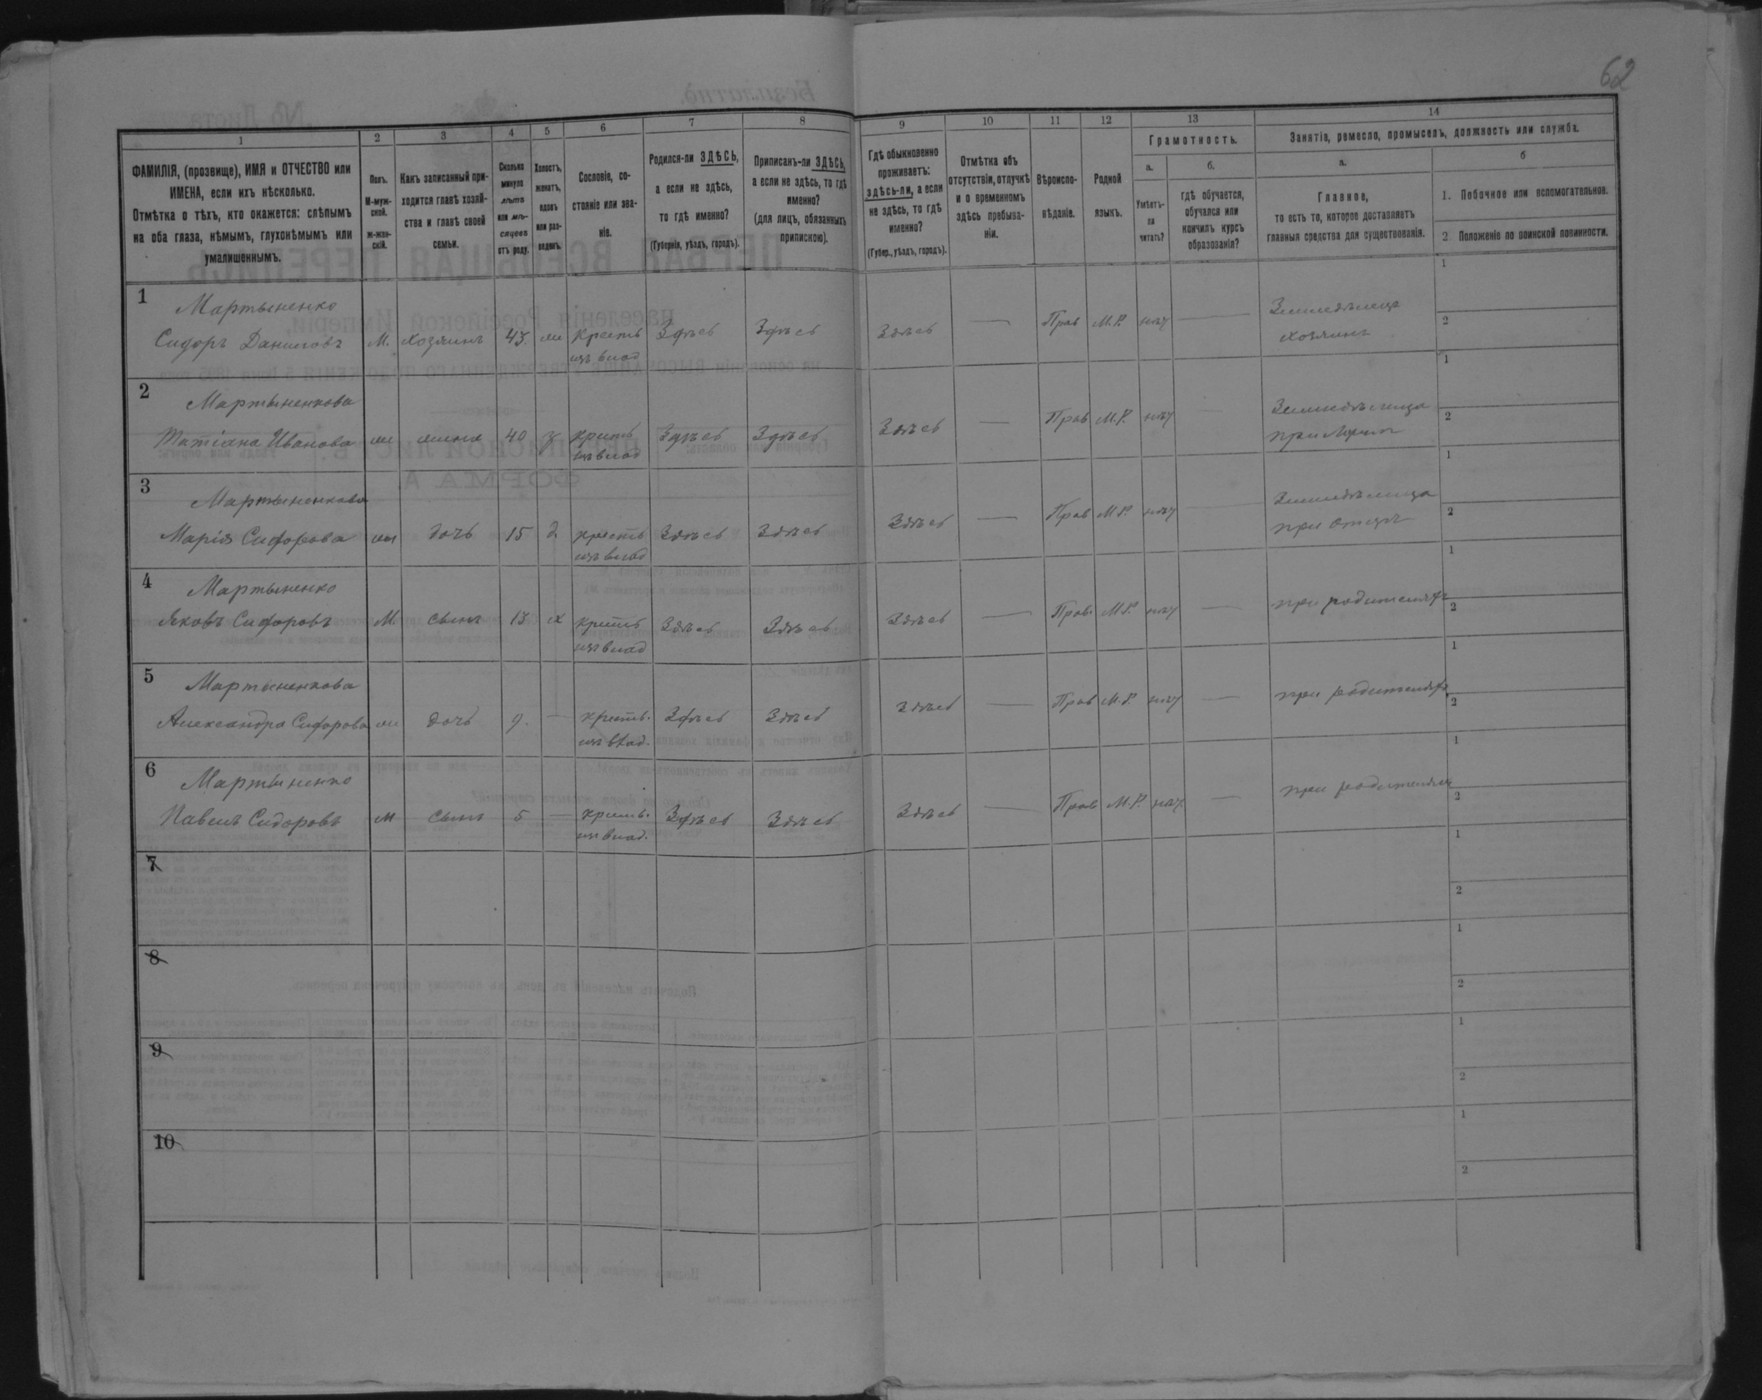 62
1 2 3 4 5 6 7 8 9 10 11 12 13 14
ФАМИЛІЯ, (прозвище), ИМЯ и ОТЧЕСТВО или
ИМЕНА, если ихъ нѣсколько.
Отмѣтка о тѣхъ, кто окажется: слѣпымъ
на оба глаза, нѣмымъ, глухонѣмымъ или
умалишеннымъ.
Полъ.
М-муж-
ской.
ж-жен-
скій.
Какъ записанный при-
ходится главѣ хозяй-
ства и главѣ своей
семьи.
Сколько
минуло
лѣтъ
или мѣ-
сяцевъ
отъ роду.
Холостъ,
женатъ,
вдовъ
или раз-
веденъ.
Сословіе, со-
стояніе или зва-
ніе.
Родился-ли ЗДѢСЬ,
а если не здѣсь,
то гдѣ именно?
(Губернія, уѣздъ, городъ).
Приписанъ-ли ЗДѢСЬ,
а если не здѣсь, то гдѣ
именно?
(для лицъ, обязанныхъ
припискою).
Гдѣ обыкновенно
проживаетъ:
здѣсь-ли, а если
не здѣсь, то гдѣ
именно?
(Губер., уѣздъ, городъ).
Отмѣтка объ
отсутствіи, отлучкѣ
и о временномъ
здѣсь пребыва-
ніи.
Вѣроиспо-
вѣданіе.
Родной
языкъ.
Грамотность.
а.
Умѣетъ-
ли
читать?
б.
гдѣ обучается,
обучался или
кончилъ курсъ
образованія?
Занятіе, ремесло, промыселъ, должность или служба.
а.
Главное,
то есть то, которое доставляетъ
главныя средства для существованія.
б
1. Побочное или вспомогательное.
2 Положеніе по воинской повинности.
1 Мартыненко
Сидоръ Даниловъ М. хозяинъ 43 крестъ Здѣсь Здѣсь Здѣсь — Прав М.Р. нѣт — Земледѣлецъ
изъ влад хозяинъ
1
2
2 Мартыненкова
Татіана Иванова жена 40 крестъ Здѣсь Здѣсь Здѣсь — Прав М.Р. нѣт — Земледѣлица
изъ влад при мужѣ
1
2
3 Мартыненкова
Марія Сидорова дочь 15 крестъ Здѣсь Здѣсь Здѣсь — Прав М.Р. нѣт — Земледѣлица
изъ влад при отцѣ
1
2
4 Мартыненко
Яковъ Сидоровъ М. сынъ 13 х крестъ Здѣсь Здѣсь Здѣсь — Прав. М.Р. нѣт — при родителяхъ
изъ влад
1
2
5 Мартыненкова
Александра Сидорова дочь 9. — крестъ. Здѣсь Здѣсь Здѣсь — Прав М.Р. нѣт — при родителяхъ
изъ влад.
1
2
6 Мартыненко
Павелъ Сидоровъ М сынъ 5 — крестъ. Здѣсь Здѣсь Здѣсь — Прав М.Р. нѣт. — при родителяхъ
изъ влад.
1
2
7
1
2
8
1
2
9
1
2
10
1
2